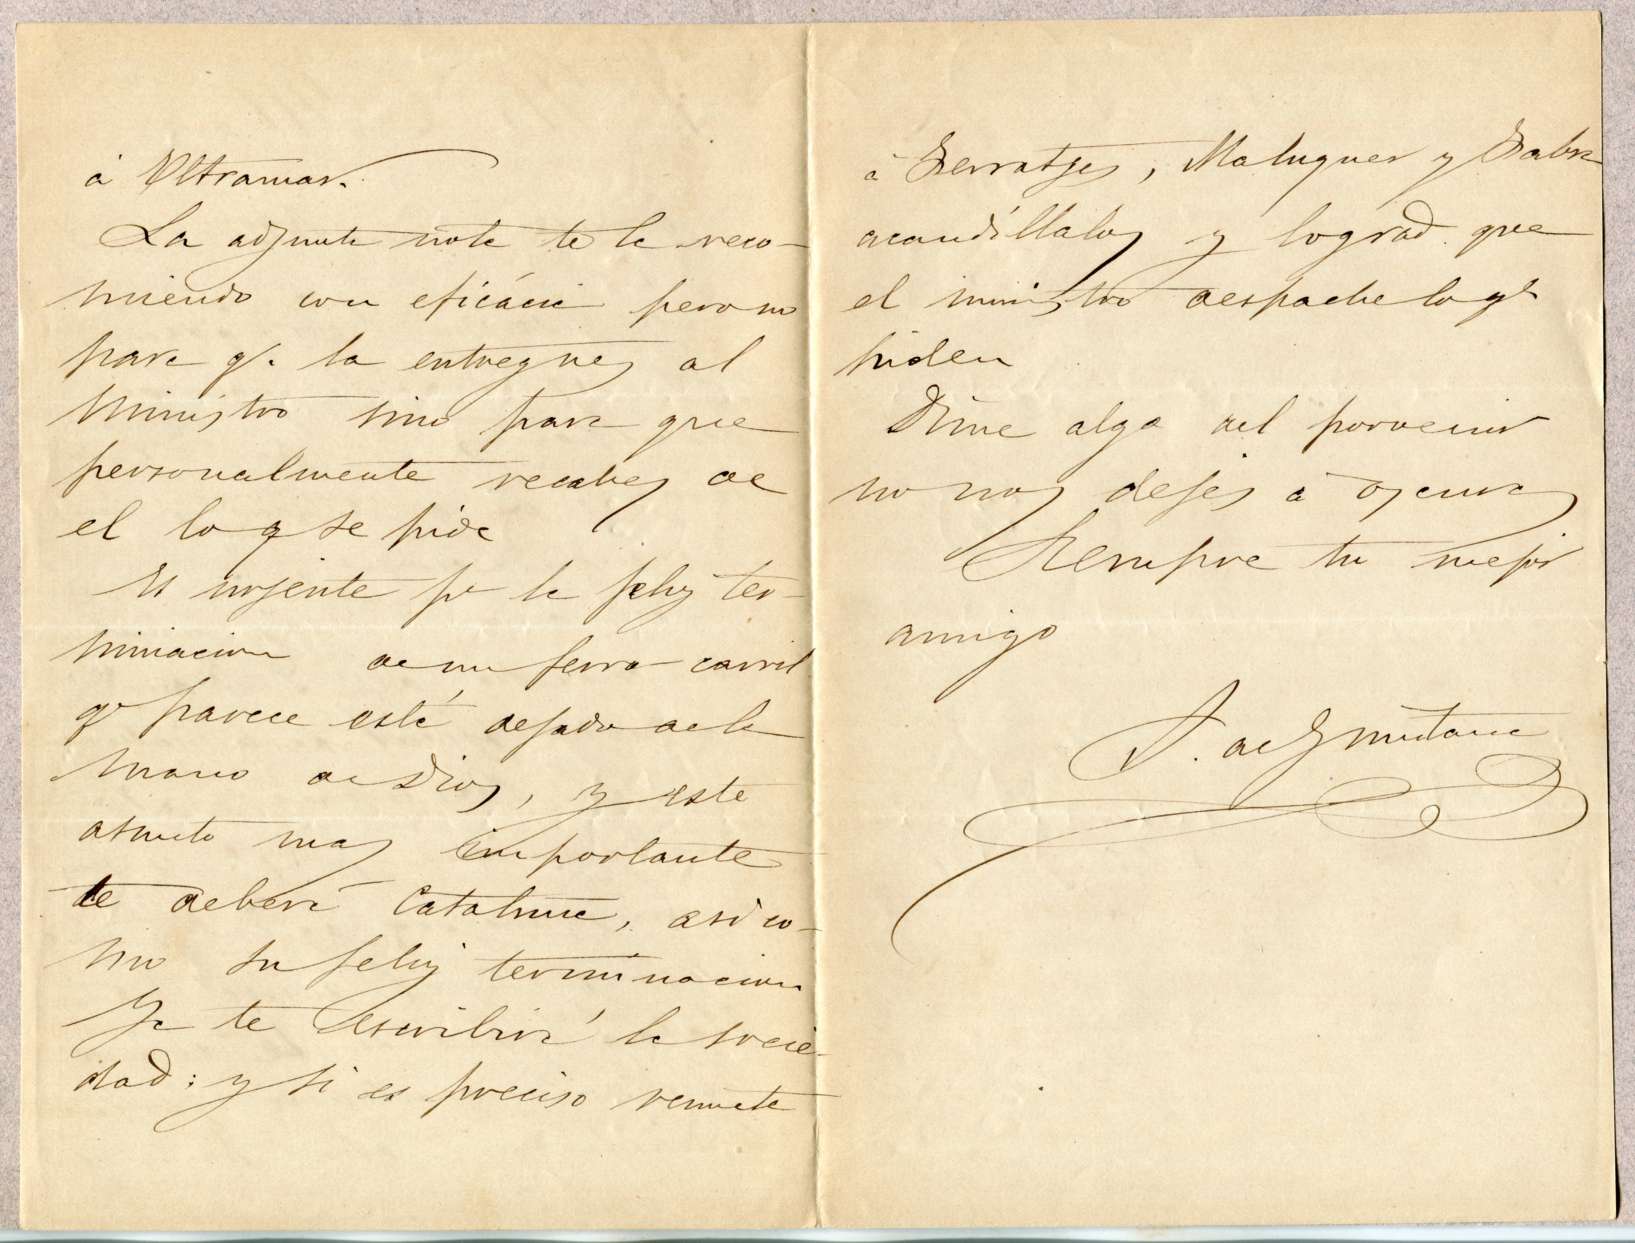 á Ultramar.
La adjunta nota te la reco-
miendo con eficácia pero no
para q.e la entregues al
Ministro sino para que
personalmente recabes de
el lo q se pide
Es urjente pª la feliz ter-
minacion de un ferro-carril
qe parece esté dejado de la
mano de Dios, y este
asunto mas importante
te deberá Cataluña, asi co-
mo su feliz terminacion
Ya te escribirá la socie-
dad: y si es preciso reunete
á Ferratges, Maluquer y Fabra
acaudillalos y lograd que
el ministro despache lo qe
piden
Dime algo del porvenir
no nos dejes á oscuras
Siempre tu mejor
amigo